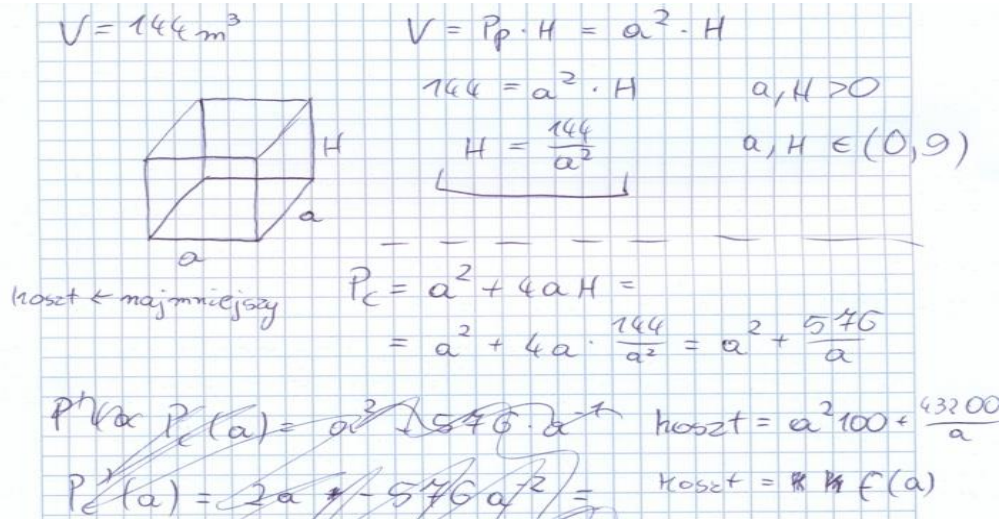 V = 144 m³
V = Pp · H = a² · H
144 = a² · H a, H > 0
H = 144/a² a, H ∈ (0, 9)
H
a
a
koszt ← najmniejszy
Pc = a² + 4aH =
= a² + 4a · 144/a² = a² + 576/a
Pc(a) = a² + 576 · a⁻¹
koszt = a² 100 + 43200/a
Pc'(a) = 2a - 576 a⁻² =
koszt = f(a)